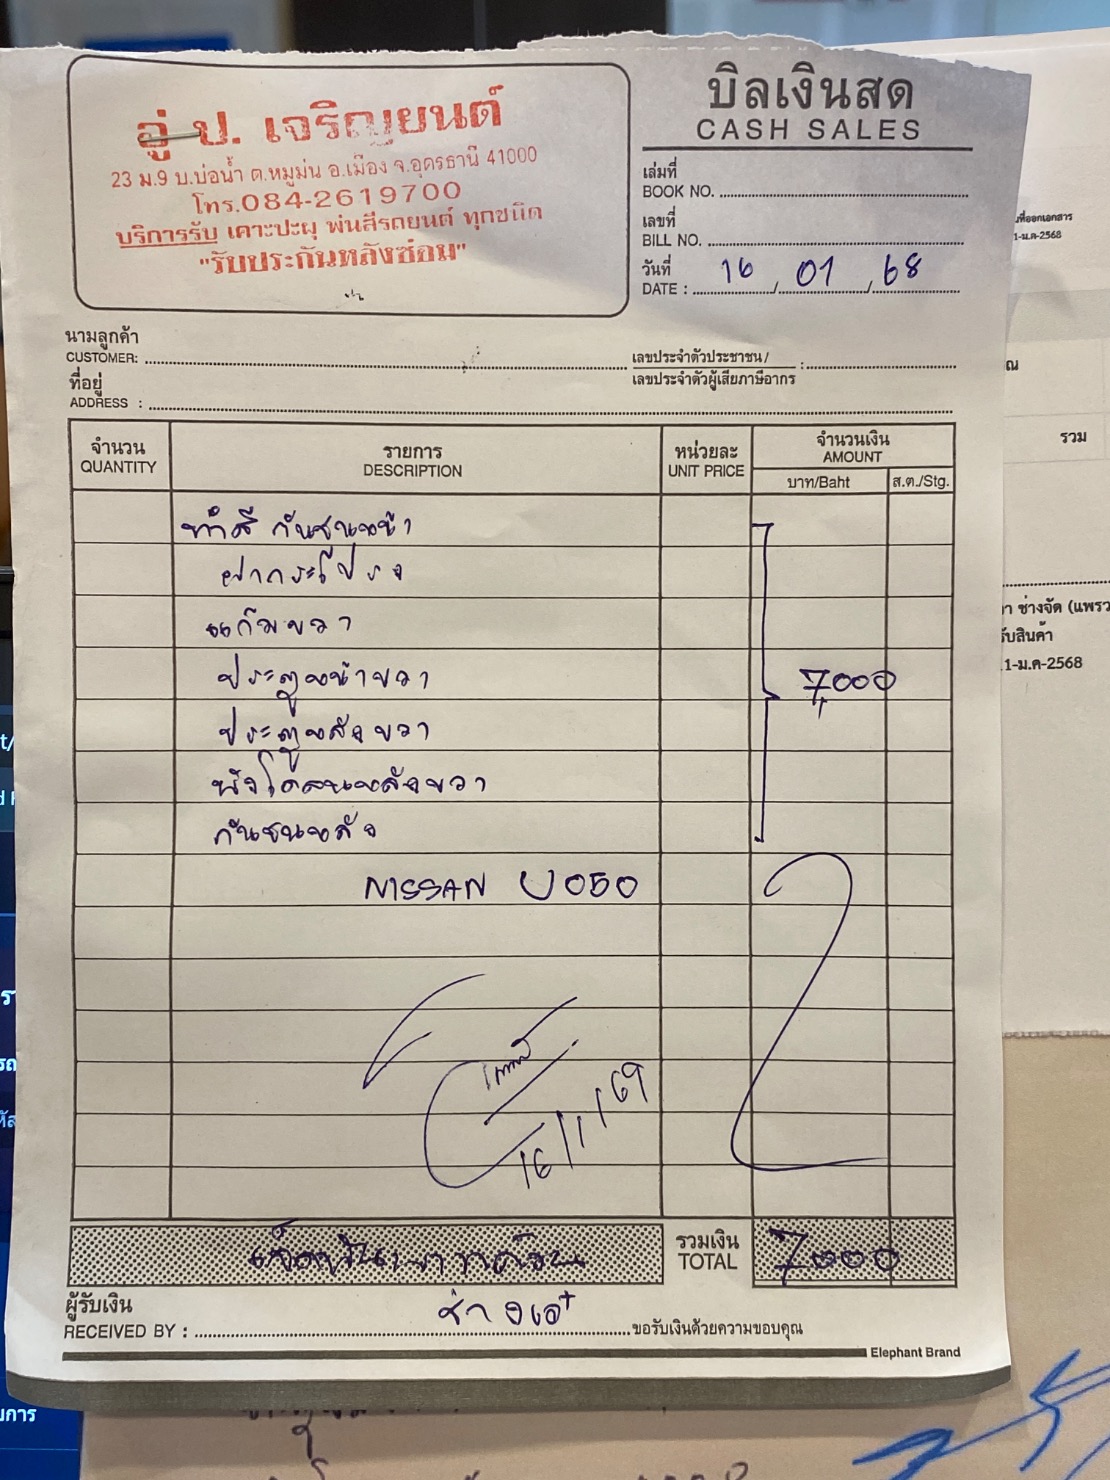 อู่ ป. เจริญยนต์
23 ม.9 บ.บ่อน้ำ ต.หมูม่น อ.เมือง จ.อุดรธานี 41000
โทร.084-2619700
บริการรับ เคาะปะผุ พ่นสีรถยนต์ ทุกชนิด
"รับประกันหลังซ่อม"
บิลเงินสด
CASH SALES
เล่มที่
BOOK NO.
เลขที่
BILL NO.
วันที่
DATE : 16 / 01 / 68
นามลูกค้า
CUSTOMER:
เลขประจำตัวประชาชน/
เลขประจำตัวผู้เสียภาษีอากร :
ที่อยู่
ADDRESS :
จำนวน รายการ หน่วยละ จำนวนเงิน
QUANTITY DESCRIPTION UNIT PRICE AMOUNT
บาท/Baht ส.ต./Stg.
ทำสี กันชนหน้า
ฝากระโปรง
แก้มขวา
ประตูหน้าขวา 7,000
ประตูหลังขวา
บังโคลนหลังขวา
กันชนหลัง
NISSAN U050
16/1/69
เจ็ดพันบาทถ้วน
รวมเงิน
TOTAL 7000
ผู้รับเงิน
RECEIVED BY : ขอรับเงินด้วยความขอบคุณ
Elephant Brand
1-ม.ค-2568
รวม
ช่างจัด (แพรว
รับสินค้า
1-ม.ค-2568